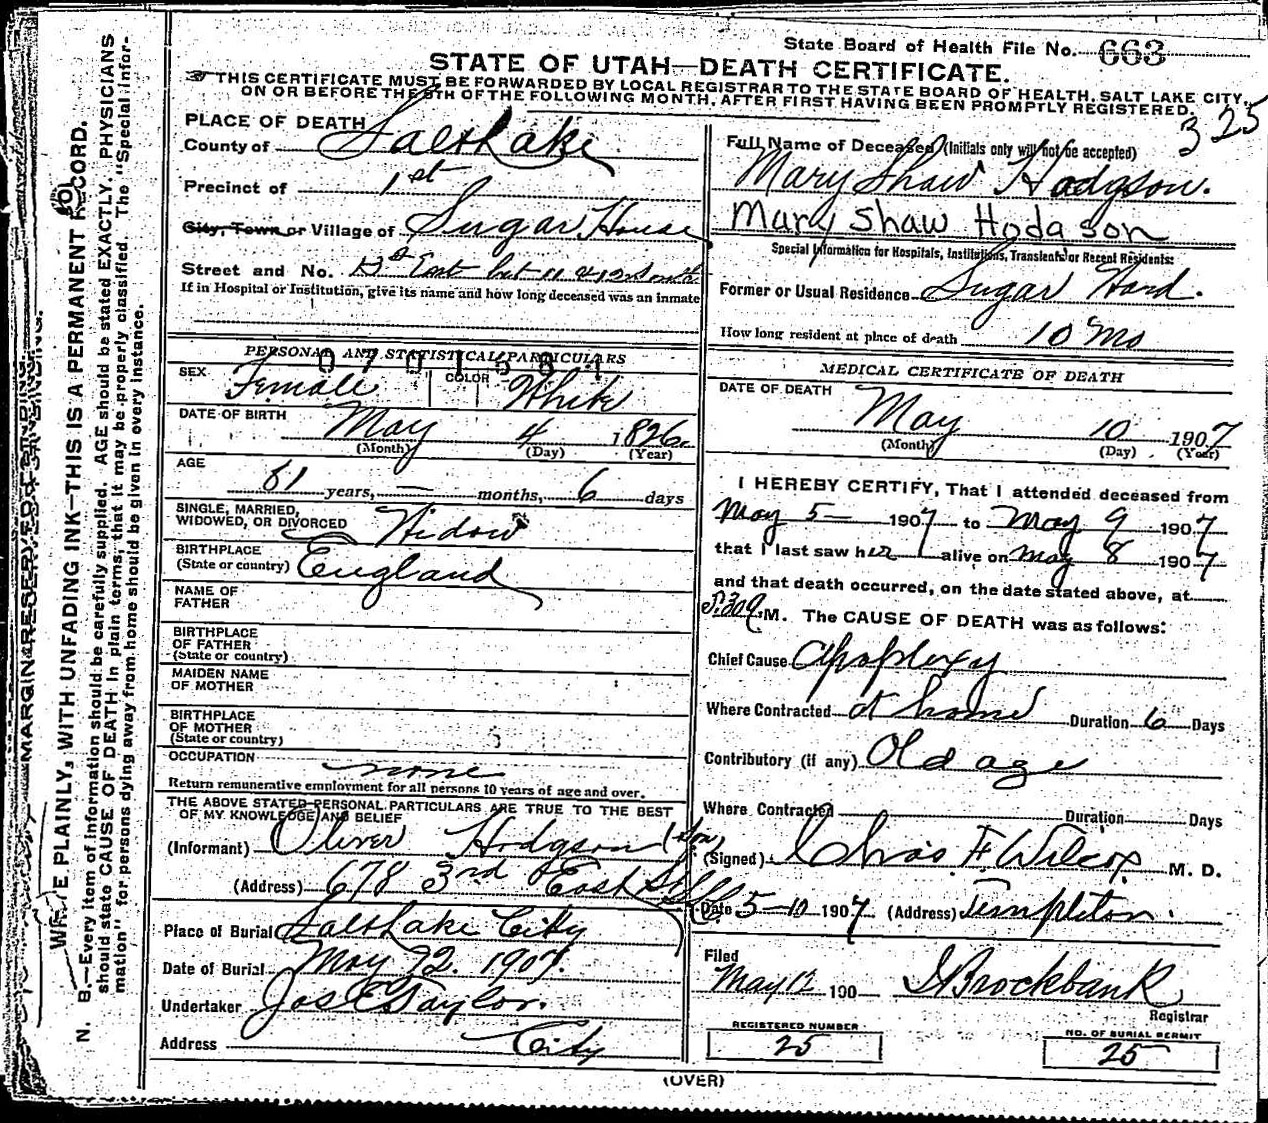 State Board of Health File No. 663
STATE OF UTAH—DEATH CERTIFICATE.
THIS CERTIFICATE MUST BE FORWARDED BY LOCAL REGISTRAR TO THE STATE BOARD OF HEALTH, SALT LAKE CITY,
ON OR BEFORE THE 5TH OF THE FOLLOWING MONTH, AFTER FIRST HAVING BEEN PROMPTLY REGISTERED.
325
PLACE OF DEATH
County of Salt Lake
Precinct of 1st
City, Town or Village of Sugar House
Street and No. East bet 11 & 12 South
If in Hospital or Institution, give its name and how long deceased was an inmate
PERSONAL AND STATISTICAL PARTICULARS
SEX Female COLOR White
DATE OF BIRTH May 4 1826
(Month) (Day) (Year)
AGE 81 years, — months, 6 days
SINGLE, MARRIED,
WIDOWED, OR DIVORCED Widow
BIRTHPLACE
(State or country) England
NAME OF
FATHER
BIRTHPLACE
OF FATHER
(State or country)
MAIDEN NAME
OF MOTHER
BIRTHPLACE
OF MOTHER
(State or country)
OCCUPATION none
Return remunerative employment for all persons 10 years of age and over.
THE ABOVE STATED PERSONAL PARTICULARS ARE TRUE TO THE BEST
OF MY KNOWLEDGE AND BELIEF
(Informant) Oliver Hodgson (Son)
(Address) 678 3rd East
Place of Burial Salt Lake City
Date of Burial May 1907.
Undertaker Jos E Taylor.
Address City
Full Name of Deceased (Initials only will not be accepted)
Mary Shaw Hodgson.
Mary Shaw Hodgson
Special Information for Hospitals, Institutions, Transients or Recent Residents:
Former or Usual Residence Sugar Ward.
How long resident at place of death 10 Mo
MEDICAL CERTIFICATE OF DEATH
DATE OF DEATH May 10 1907
(Month) (Day) (Year)
I HEREBY CERTIFY, That I attended deceased from
May 5— 1907 to May 9 1907
that I last saw her alive on May 8 1907
and that death occurred, on the date stated above, at
M. The CAUSE OF DEATH was as follows:
Chief Cause Apoplexy
Where Contracted at home Duration 6 Days
Contributory (if any) Old age
Where Contracted Duration Days
(Signed) Chas F Wilcox M. D.
Date 5-10 1907 (Address) Templeton.
Filed
May 12 190 Brockbank
Registrar
REGISTERED NUMBER
25
NO. OF BURIAL PERMIT
25
(OVER)
MARGIN RESERVED FOR BINDING.
WRITE PLAINLY, WITH UNFADING INK—THIS IS A PERMANENT RECORD.
N. B.—Every item of information should be carefully supplied. AGE should be stated EXACTLY. PHYSICIANS
should state CAUSE OF DEATH in plain terms, that it may be properly classified. The "Special Infor-
mation" for persons dying away from home should be given in every instance.